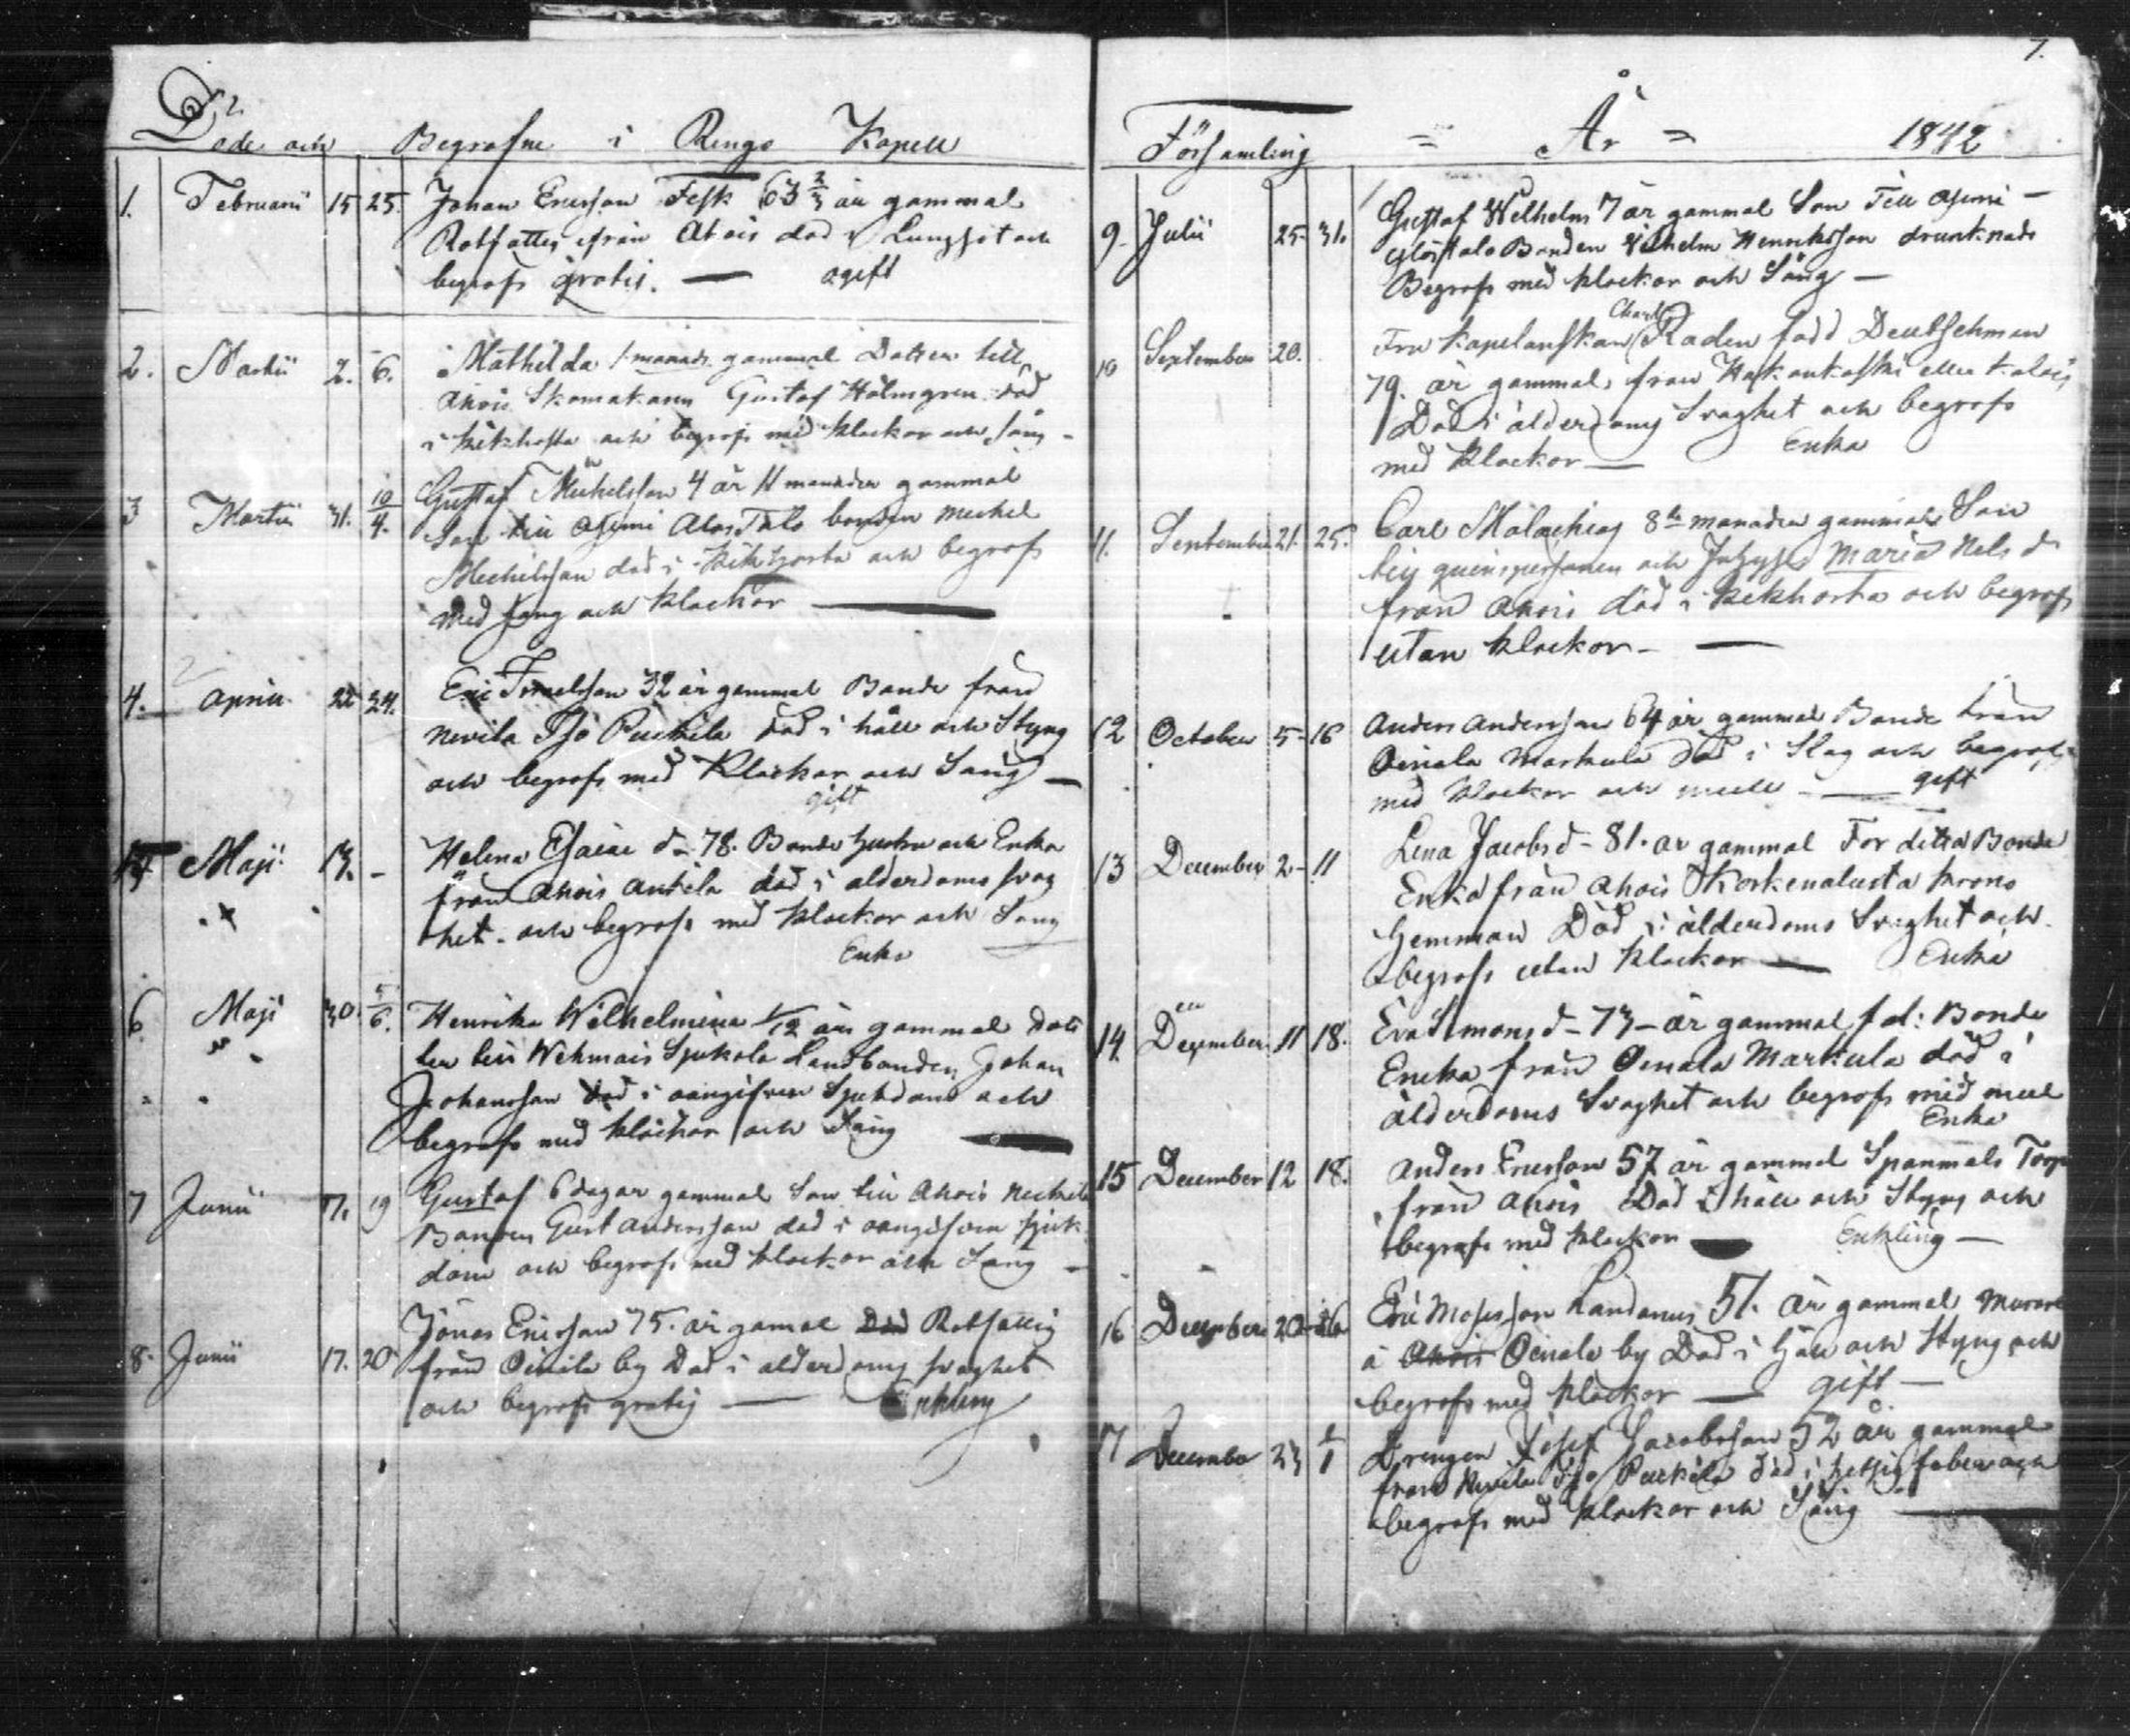 Döde och Begrafne i Rengo Kapell
1. Februarii 15 25. Johan Ericsson Fesk 63 2/3 år gammal
Rotfattig ifrån Ahois död i Lungsot och
begrofs gratis. — ogift
2. Martii 2. 6. Mathilda 1 månads gammal Dotter till
Ahois Skomakaren Gustaf Holmgren död
i kikhosta och begrofs med klockor och sång -
3 Martii 31. 10/4. Gustaf Michelsson 4 år 11 månader gammal
Son till Asemi Alastalo bonden Michel
Michelsson död i Kikhosta och begrofs
med sång och klockor —
4. April 22 24. Eric Israelsson 32 år gammal Bonde från
Nevila Iso Puckila död i håll och Styng
och begrofs med Klockor och Sång —
gift
5 Maji 13. - Helena Esaiae d- 78. Bonde hustru och Enka
från Ahois Anttila död i alderdoms svag
het. och begrofs med klockor och Sång
Enka
6 Maji 30. 5/6. Henrika Wilhelmina 1/12 års gammal Dot
ter till Wehmais Sjukola Landbonden Johan
Johansson död i oangifven Sjukdom och
begrofs med klockor och Sång —
7 Junii 17. 19 Gustaf 6 dagar gammal Son till Ahois
Bonden Gust Andersson död i oangifven sjuk
dom och begrofs med klockor och Sång -
8. Junii 17. 20 Jonas Ericsson 75. år gamal Rotfattig
från Oinila by Död i alderdoms svaghet
och begrofs gratis — Enkling
7.
Församling = År = 1842
9. Julii 25. 31. Gustaf Wilhelm 7 år gammal Son Till Asemi -
Bonden Wilhelm Henriksson drunknade
Begrofs med klockor och Sång —
Charl
10 September 20. Fru Kapelanskan Raden född Deutschman
79. år gammal, från eller
Död i ålderdoms Svaghet och begrofs
med Klockor — Enka
11. September 21. 25. Carl Malachias 8 månader gammal Son
till qvinspersonen och Maria Nels d
från Ahois död i kikhosta och begrofs
utan klockor - —
12 October 5- 16 Anders Andersson 64 år gammal Bonde från
Oinala Markula död i Slag och begrofs
med klockor och — gift
13 December 2- 11 Lena Jacobs d- 81. år gammal För detta Bonde
Enka från Ahois Korkenalusta krono
Hemman Död i ålderdoms Svaghet och
begrofs utan klockor — Enka
14. December 11 18. Eva Simons d- 73 - år gammal f.d: Bonde
Encka från Oinala Markula död i
ålderdoms Svaghet och begrofs med
Enka
15 December 12 18. Anders Ericsson 57 år gammal Spanmåls Torp
från Ahois Död i håll och Styng och
begrofs med klockor — Enkling —
16 December 20 26 Eric Mosesson Landanus 51. år gammal Murare
å Ahois Oinala by Död i Håll och Styng och
begrofs med klockor — gift —
17 December 23 1/1 Drengen Josef Jacobsson 52 år gammal
från Nevila Iso Puckila död i hetsig feber och
begrofs med klockor och Sång —